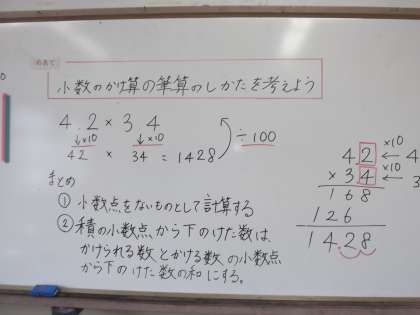 めあて
小数のかけ算の筆算のしかたを考えよう
4.2 × 3.4
↓×10 ↓×10 ÷100
42 × 34 = 1428
まとめ
① 小数点をないものとして計算する
② 積の小数点から下のけた数は、
かけられる数とかける数の小数点
から下のけた数の和にする。
×10
42 ← 4
×10
×34 ← 3
168
126
14.28